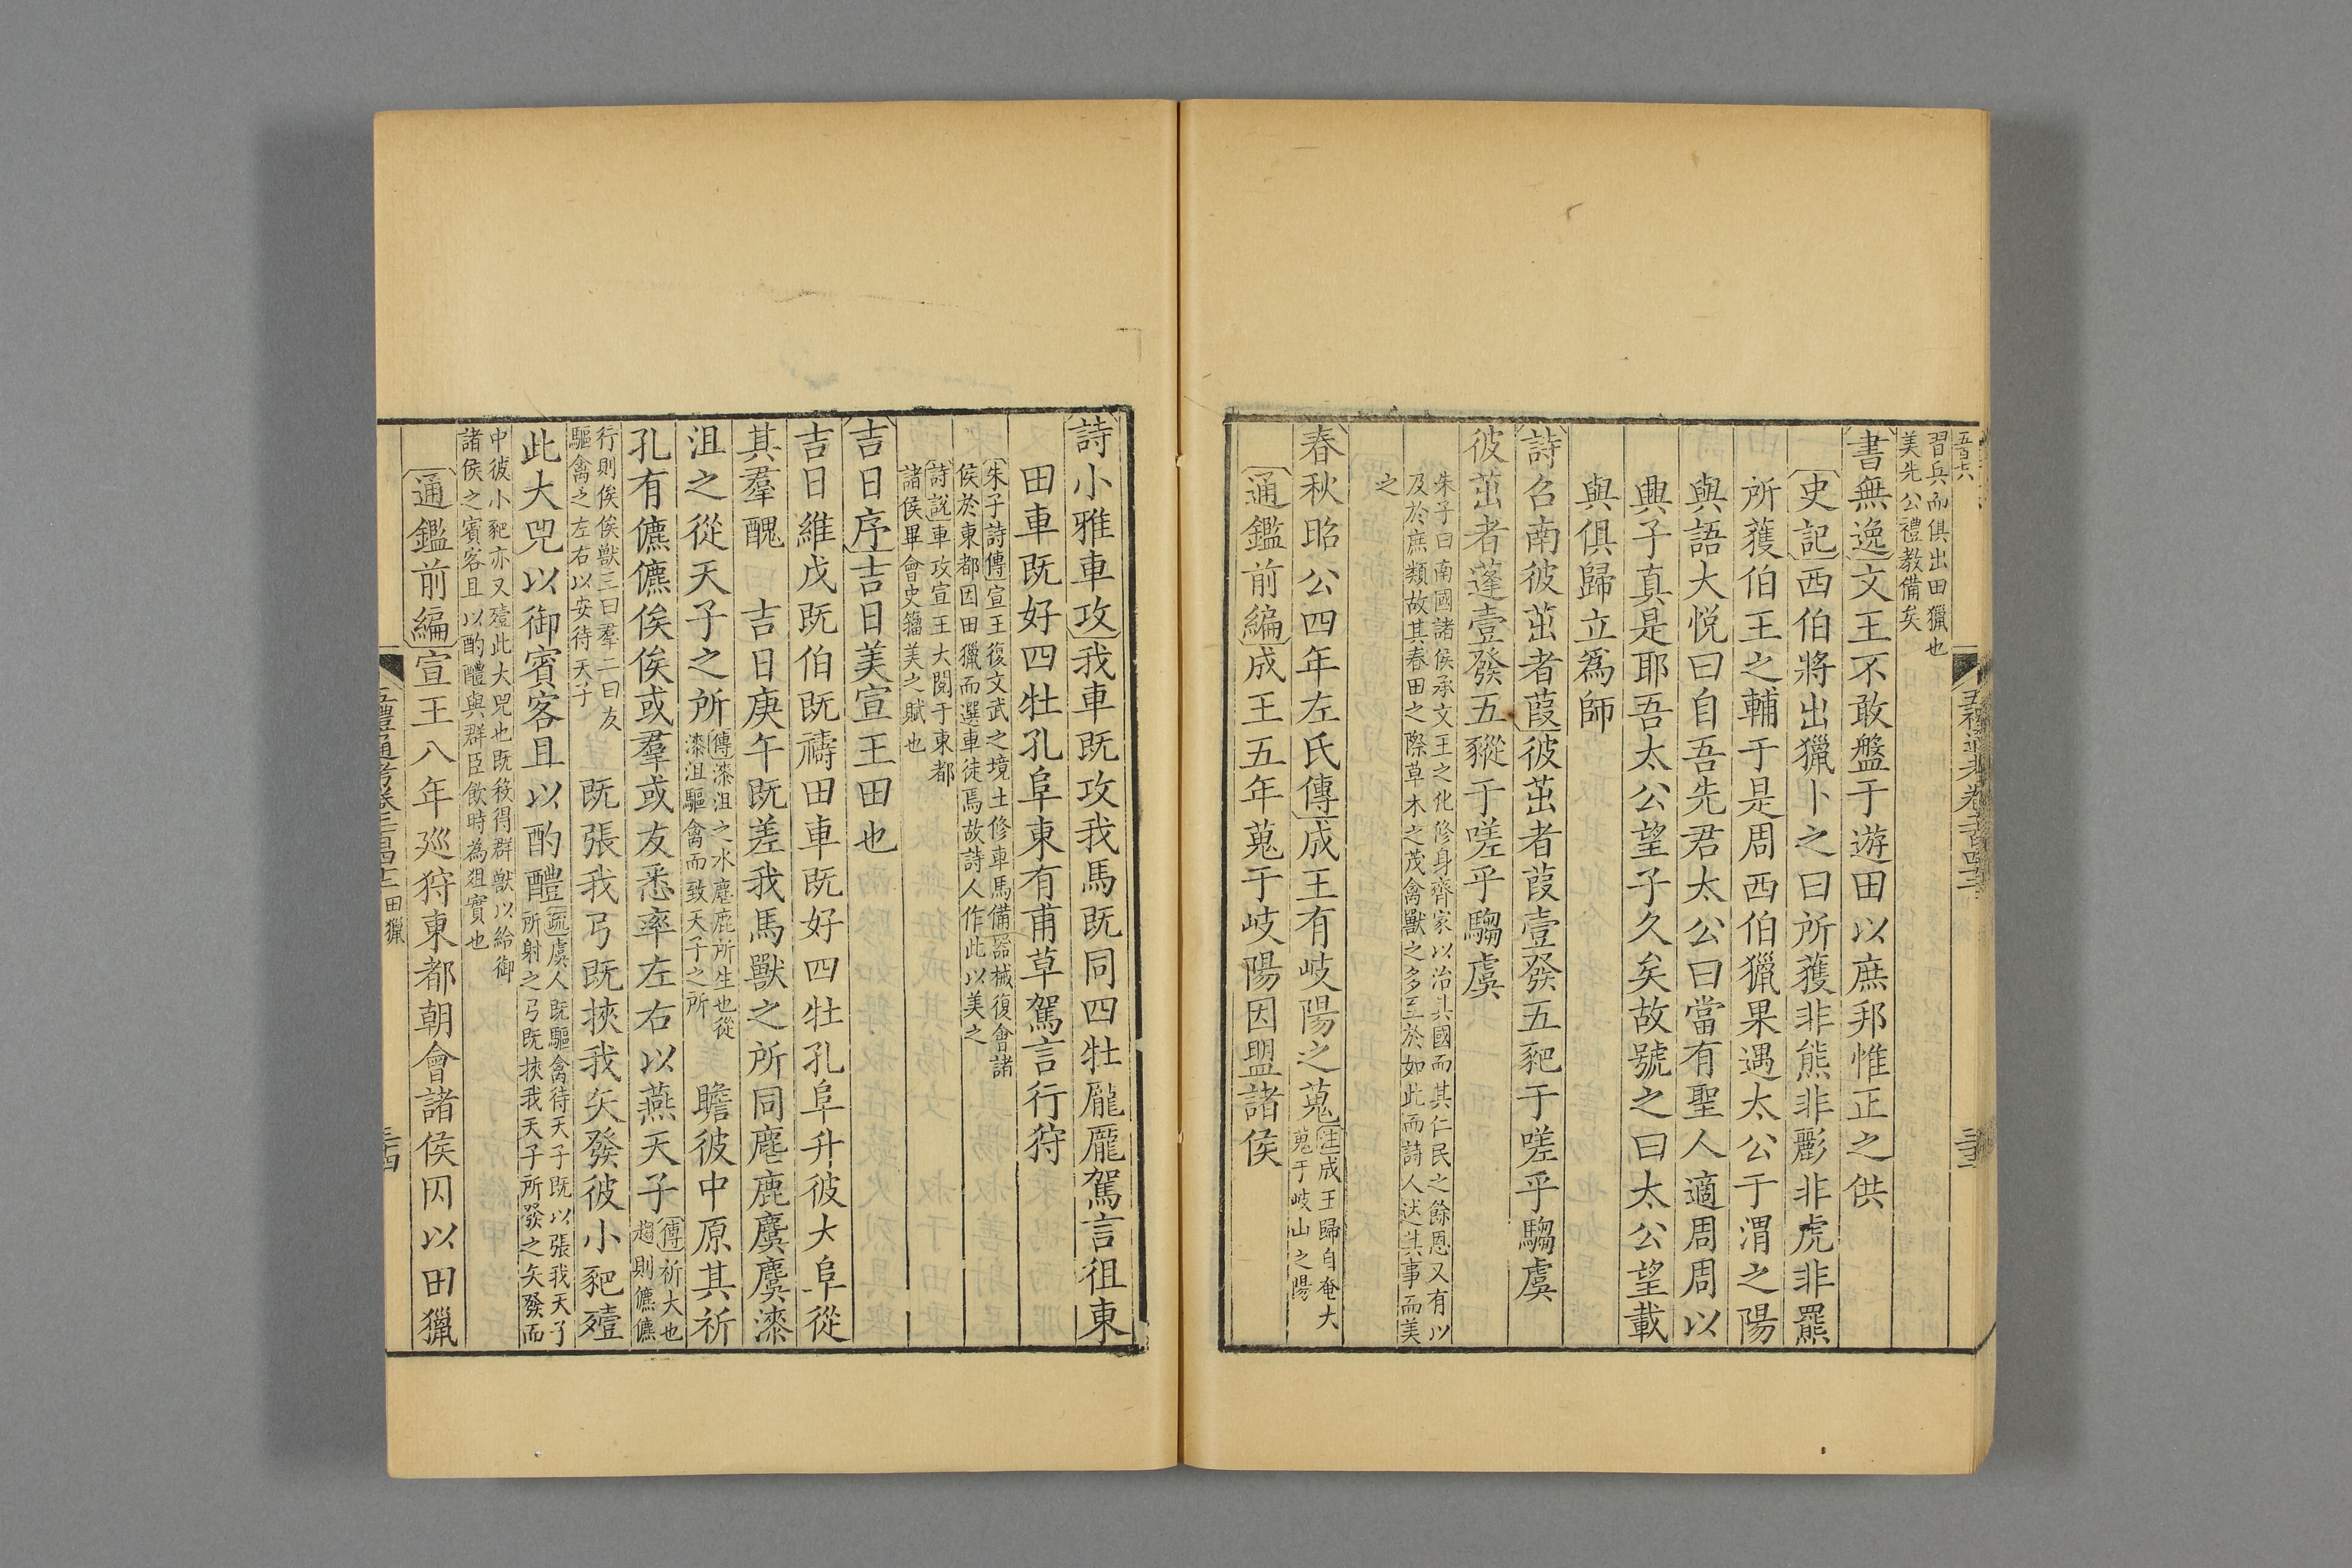 五百六
習兵而俱出田獵也
美先公禮教備矣
書無逸文王不敢盤于遊田以庶邦惟正之供
史記西伯將出獵卜之曰所獲非熊非彲非虎非羆
所獲伯王之輔于是周西伯獵果遇太公于渭之陽
與語大悅曰自吾先君太公曰當有聖人適周周以
興子真是耶吾太公望子久矣故號之曰太公望載
與俱歸立爲師
詩召南彼茁者葭彼茁者葭壹發五豝于嗟乎騶虞
彼茁者蓬壹發五豵于嗟乎騶虞
朱子曰南國諸侯承文王之化修身齊家以治其國而其仁民之餘恩又有以
及於庶類故其春田之際草木之茂禽獸之多至於如此而詩人述其事而美
之
春秋昭公四年左氏傳成王有岐陽之蒐注成王歸自奄大
蒐于岐山之陽
通鑑前編成王五年蒐于岐陽因盟諸侯
詩小雅車攻我車既攻我馬既同四牡龐龐駕言徂東
田車既好四牡孔阜東有甫草駕言行狩
朱子詩傳宣王復文武之境土修車馬備器械復會諸
侯於東都因田獵而選車徒焉故詩人作此以美之
詩說車攻宣王大閱于東都
諸侯畢會史籀美之賦也
吉日序吉日美宣王田也
吉日維戊既伯既禱田車既好四牡孔阜升彼大阜從
其羣醜 吉日庚午既差我馬獸之所同麀鹿麌麌漆
沮之從天子之所傳漆沮之水麀鹿所生也從
漆沮驅禽而致天子之所 瞻彼中原其祈
孔有儦儦俟俟或羣或友悉率左右以燕天子傳祈大也
趨則儦儦
行則俟俟獸三曰羣二曰友
驅禽之左右以安待天子 既張我弓既挾我矢發彼小豝殪
此大兕以御賓客且以酌醴疏虞人既驅禽待天子既以張我天子
所射之弓既挾我天子所發之矢發而
中彼小豝亦又殪此大兕也既殺得群獸以給御
諸侯之賓客且以酌醴與群臣飲時為俎實也
通鑑前編宣王八年巡狩東都朝會諸侯因以田獵
五禮通考卷二百四十二田獵